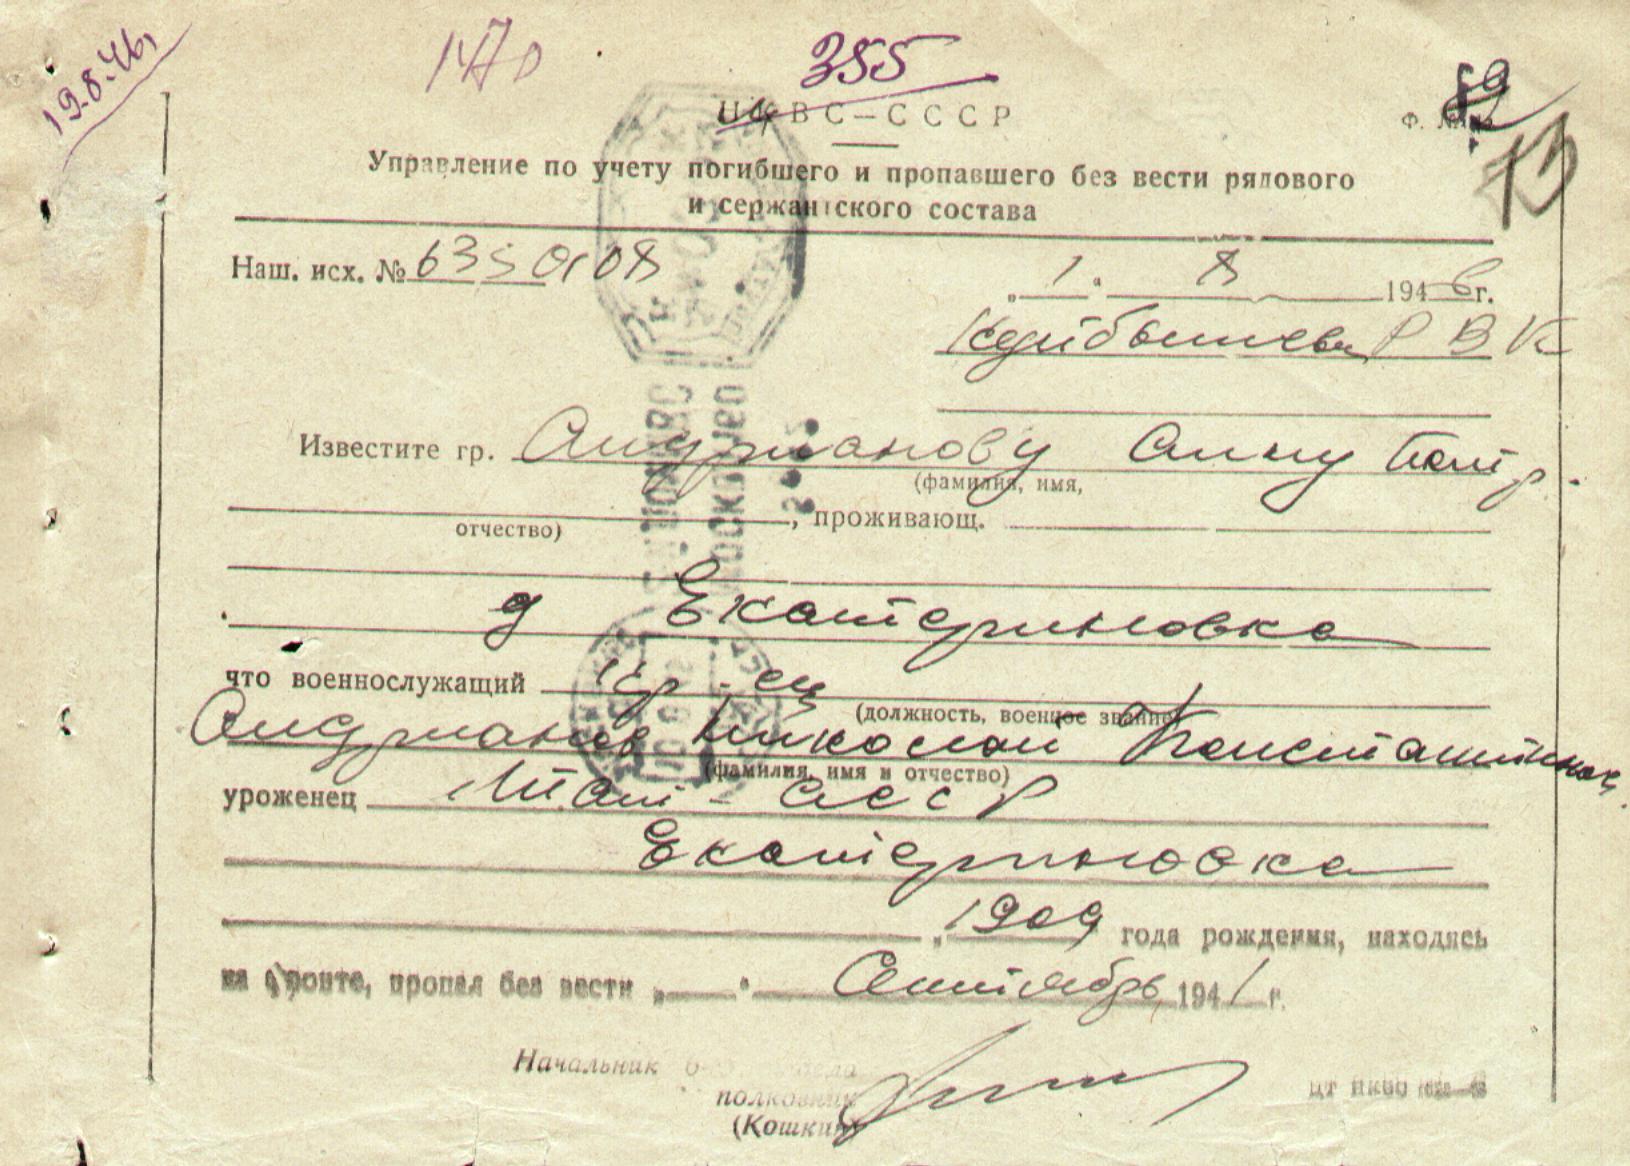 19.8.46г.
147о
355
НКВС—СССР
Ф. №
89
13
Управление по учету погибшего и пропавшего без вести рядового
и сержантского состава
Наш. исх. №
„1“ 8 1946г.
Куйбышевск РВК
Известите гр. Андриanову Анну Петр.
(фамилия, имя,
отчество)
, проживающ.
д Екатериновка
что военнослужащий кр-ец
(должность, военное звание)
Андрианов Николай Константинович.
(фамилия, имя и отчество)
уроженец Тат-АССР
Екатериновка
„1909 года рождения, находясь
на фронте, пропал без вести „ “ Сентябрь 1941 г.
Начальник 6-го отдела
полковник
(Кошкин)